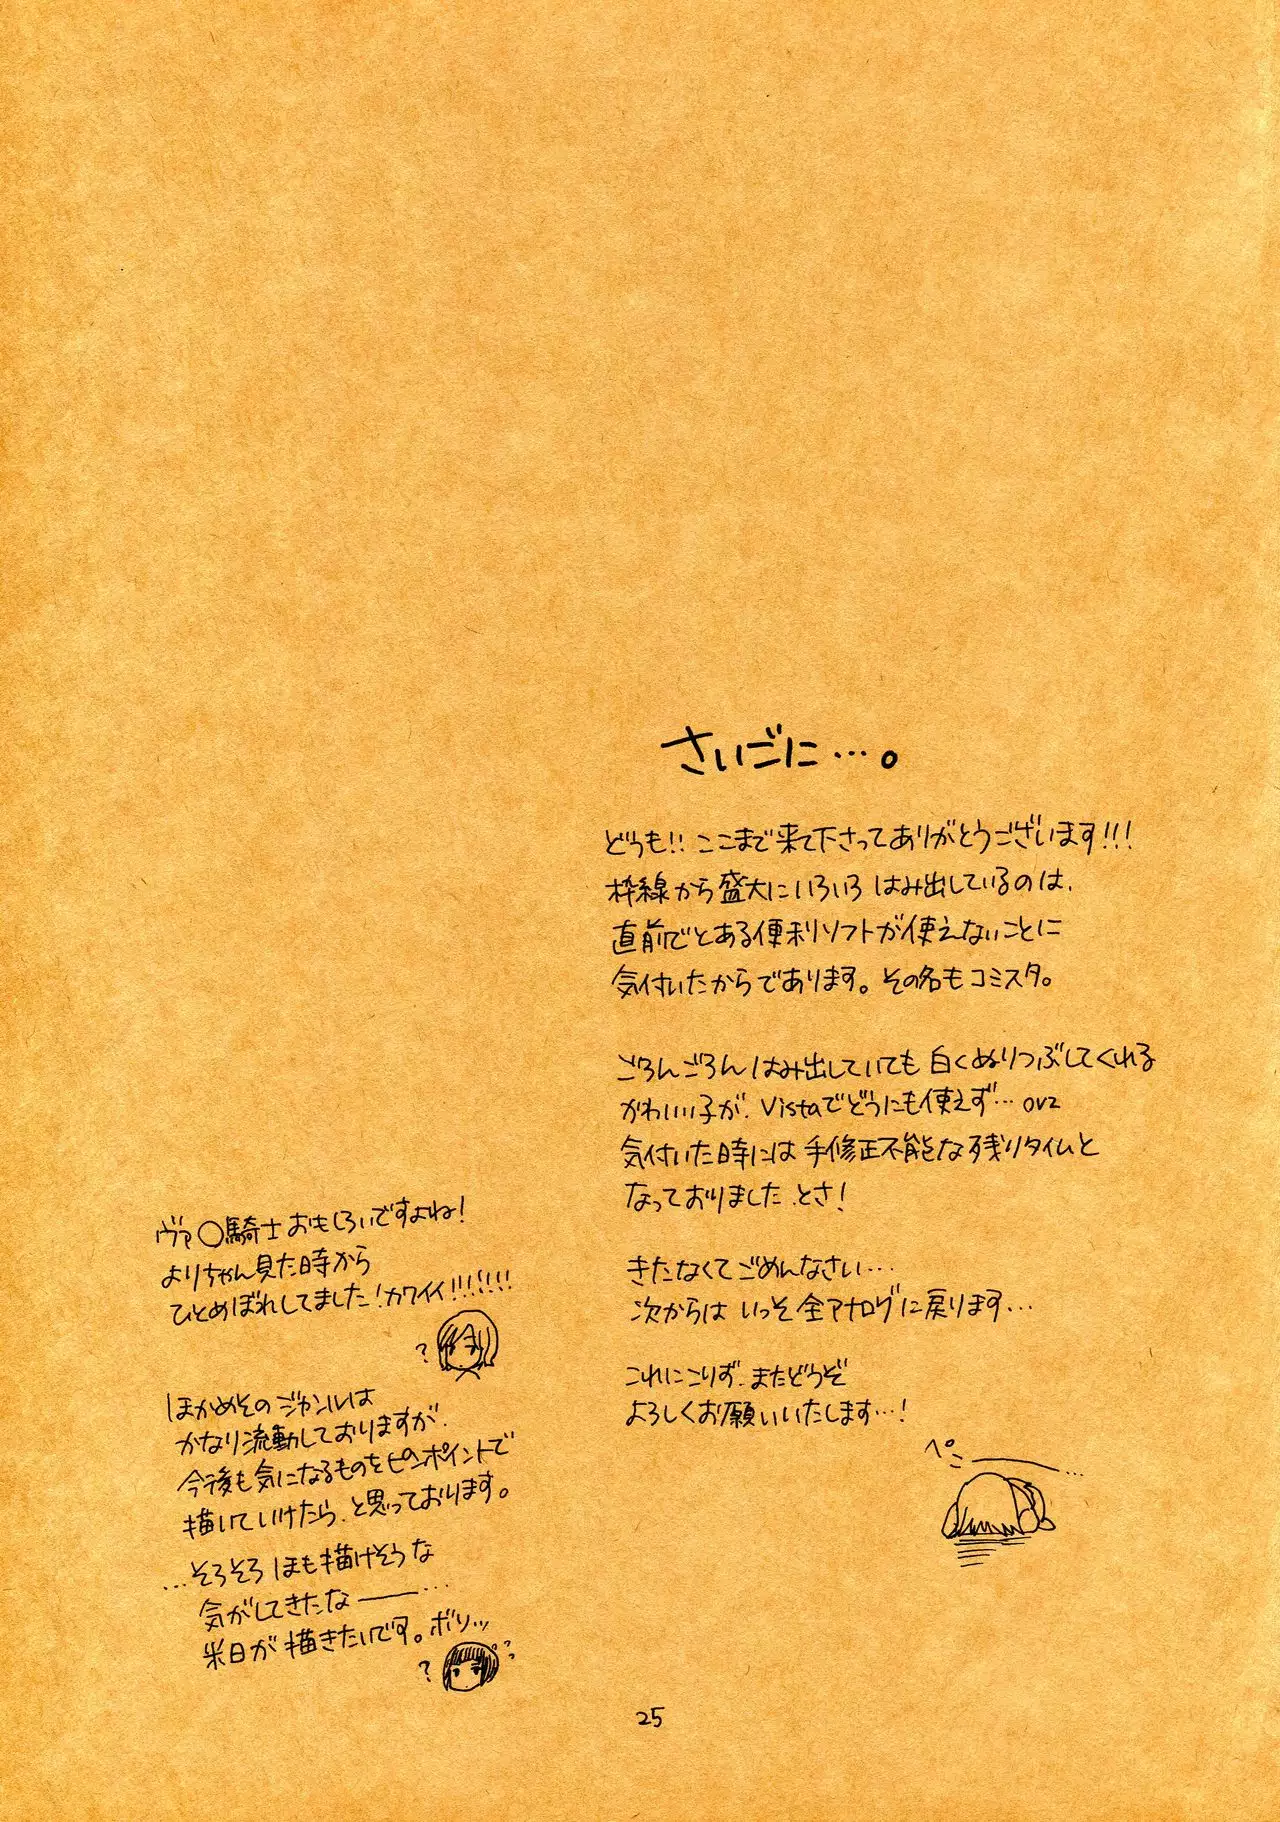 さいごに…。
どうも!! ここまで来て下さってありがとうございます!!!
枠線から盛大にいろいろ はみ出しているのは、
直前でとある便利ソフトが使えないことに
気付いたからであります。その名もコミスタ。
ごろんごろん はみ出していても 白くぬりつぶしてくれる
かわいい子が、Vistaでどうにも使えず… orz
気付いた時には 手修正不能な残りタイムと
なっておりました、とさ!
きたなくてごめんなさい…
次からは いっそ全アナログに戻ります…
これにこりず、またどうぞ
よろしくお願いいたします…!
ペこ――…
ヴァ〇騎士おもしろいですよね!
よりちゃん見た時から
ひとめぼれしてました!カワイイ!!!!!!
?
ほかめそのジャンルは
かなり流動しておりますが、
今後も気になるものをピンポイントで
描いていけたら、と思っております。
…そろそろ ほも描けそうな
気がしてきたな――…
米日が描きたいです。ボソッ
?
??
25